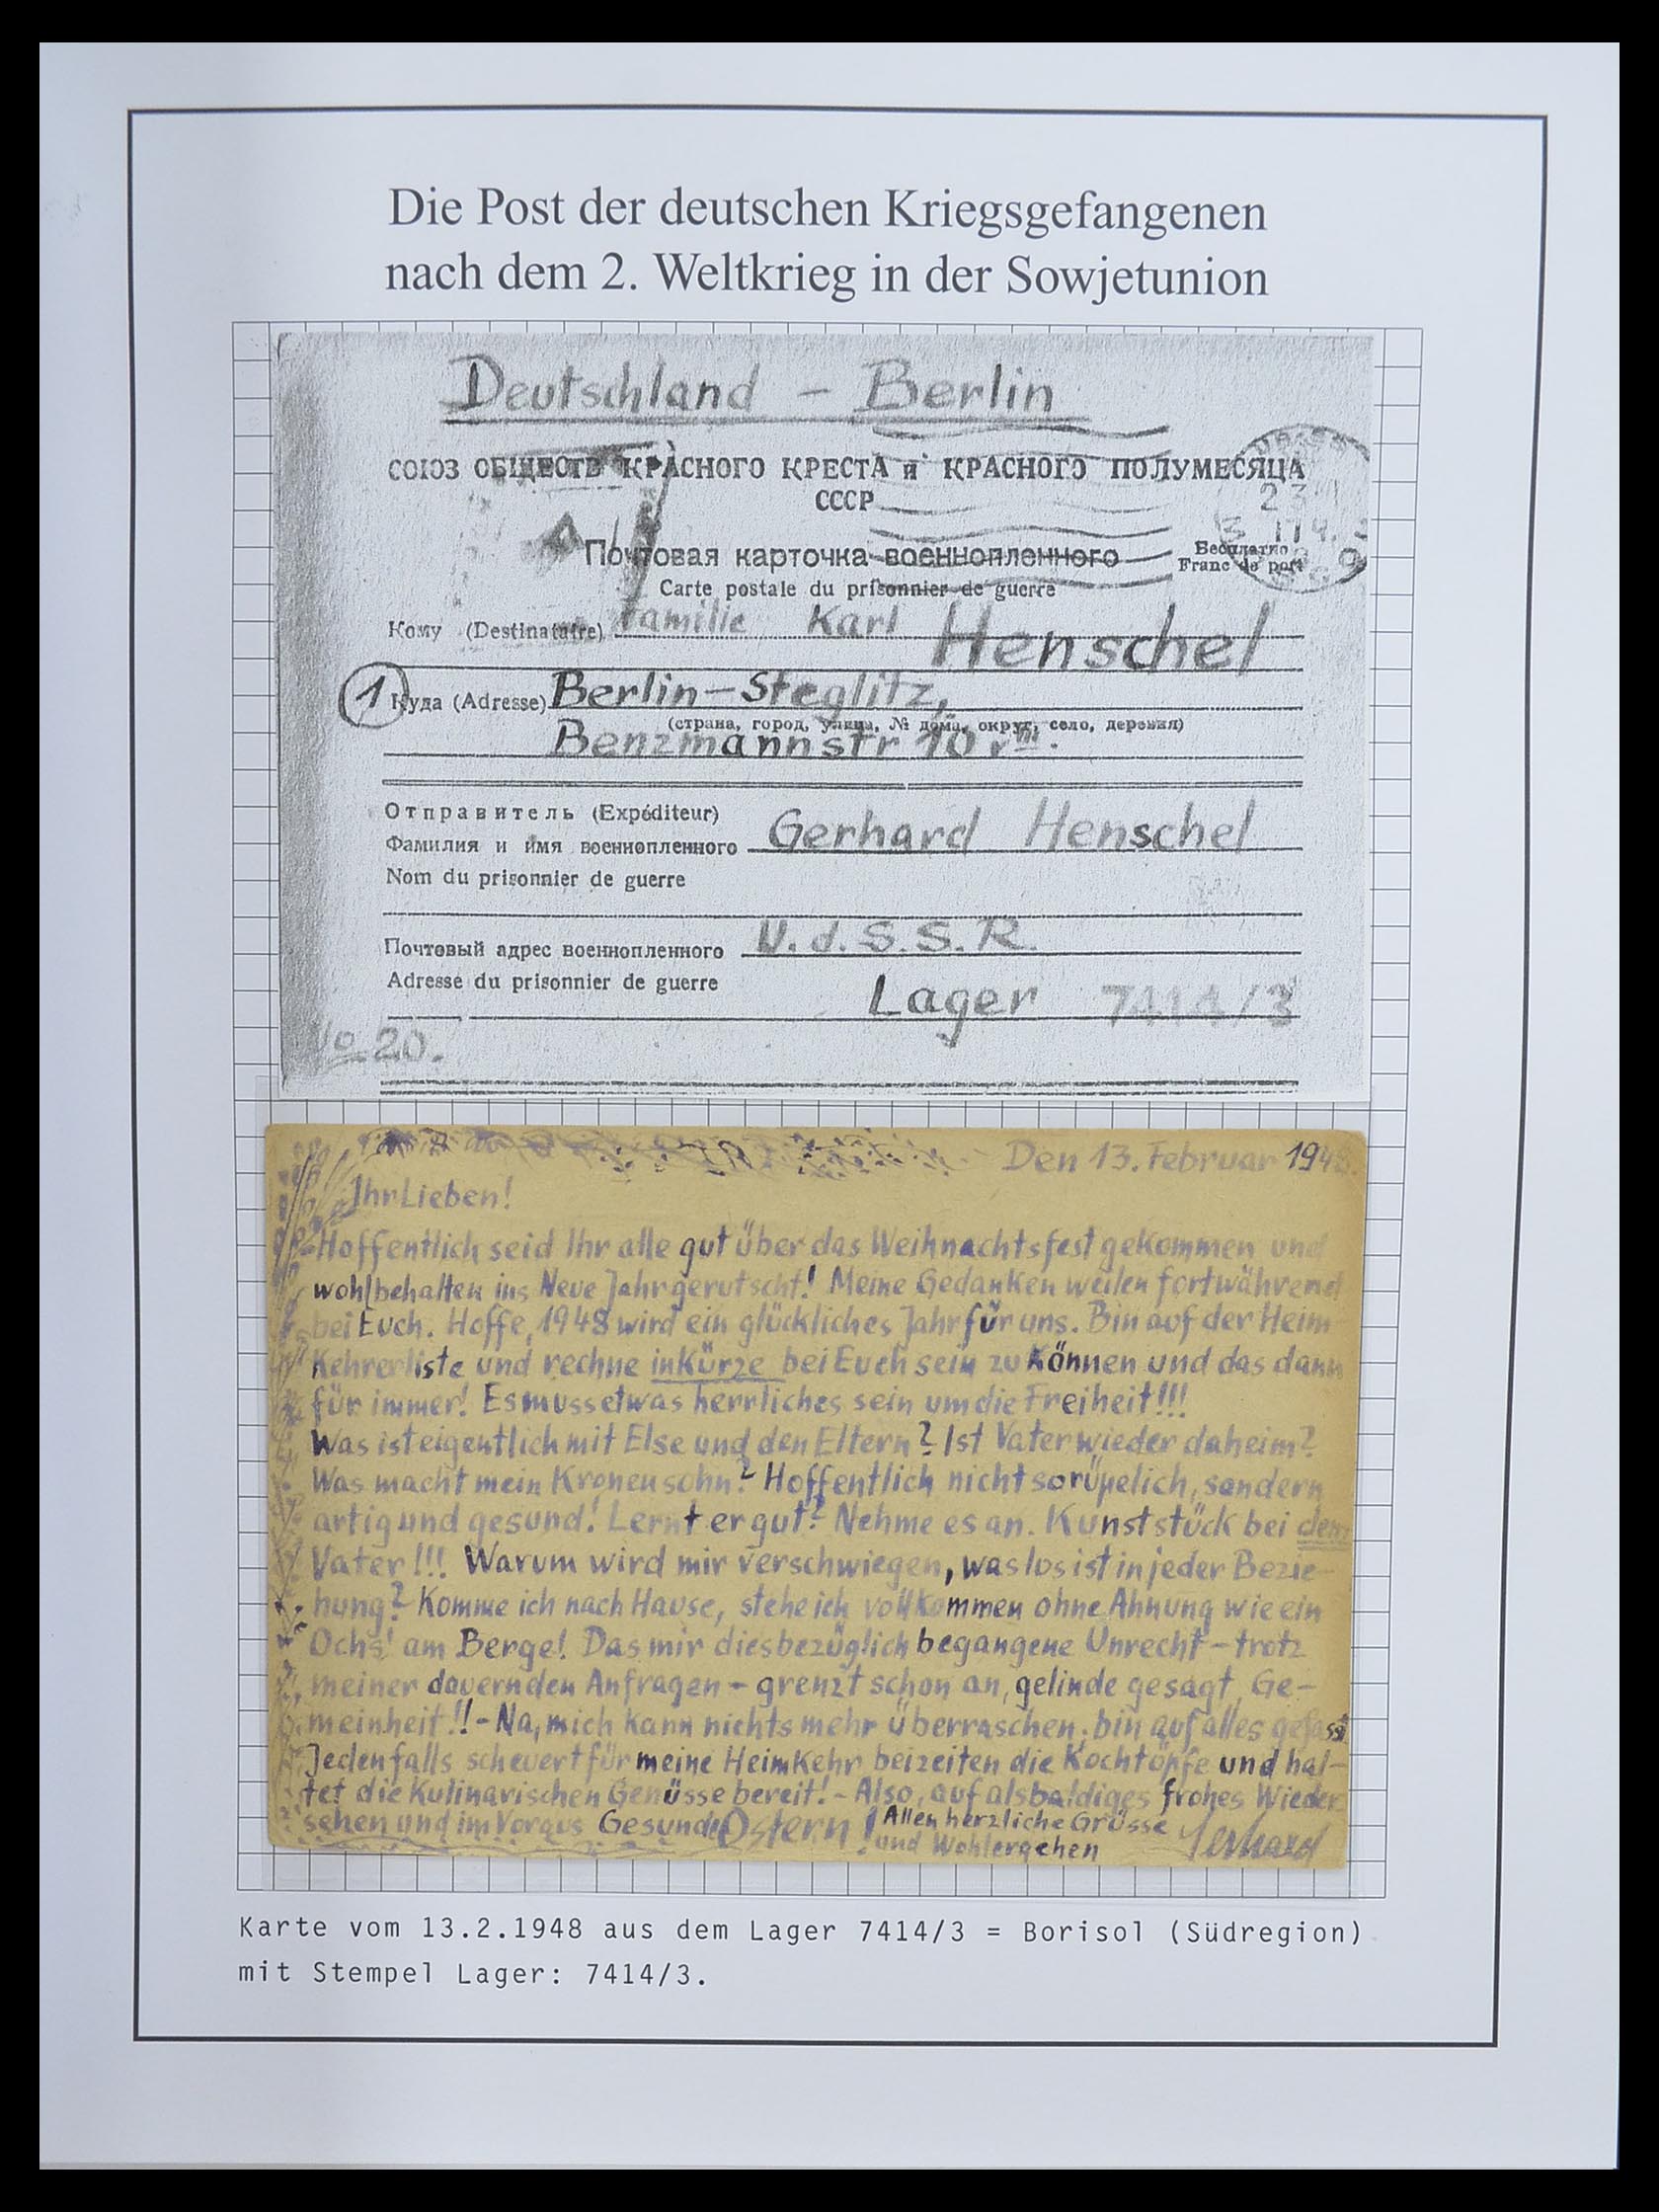 Die Post der deutschen Kriegsgefangenen
nach dem 2. Weltkrieg in der Sowjetunion
Deutschland – Berlin
СОЮЗ ОБЩЕСТВ КРАСНОГО КРЕСТА и КРАСНОГО ПОЛУМЕСЯЦА
СССР
Почтовая карточка военнопленного
Бесплатно
Carte postale du prisonnier de guerre
Franc de port
Кому (Destinataire) Familie Karl Henschel
1 Куда (Adresse) Berlin-Steglitz,
(страна, город, улица, № дома, округ, село, деревня)
Benzmannstr 10
Отправитель (Expéditeur)
Фамилия и имя военнопленного Gerhard Henschel
Nom du prisonnier de guerre
Почтовый адрес военнопленного U.d.S.S.R.
Adresse du prisonnier de guerre Lager 7414/3
No 20.
Den 13. Februar 1948.
Ihr Lieben!
Hoffentlich seid Ihr alle gut über das Weihnachtsfest gekommen und
wohlbehalten ins Neue Jahr gerutscht! Meine Gedanken weilen fortwährend
bei Euch. Hoffe, 1948 wird ein glückliches Jahr für uns. Bin auf der Heim-
kehrerliste und rechne in Kürze bei Euch sein zu können und das dann
für immer! Es muss etwas herrliches sein um die Freiheit!!!
Was ist eigentlich mit Else und den Eltern? Ist Vater wieder daheim?
Was macht mein Kronensohn? Hoffentlich nicht so rüpelich, sondern
artig und gesund! Lernt er gut? Nehme es an. Kunststück bei dem
Vater!!! Warum wird mir verschwiegen, was los ist in jeder Bezie-
hung? Komme ich nach Hause, stehe ich vollkommen ohne Ahnung wie ein
Ochs' am Berge! Das mir diesbezüglich begangene Unrecht – trotz
meiner dauernden Anfragen – grenzt schon an, gelinde gesagt, Ge-
meinheit!! – Na, mich kann nichts mehr überraschen; bin auf alles gefasst
Jedenfalls scheuert für meine Heimkehr beizeiten die Kochtöpfe und hal-
tet die kulinarischen Genüsse bereit! – Also, auf alsbaldiges frohes Wieder-
sehen und im Voraus Gesunde Ostern! Allen herzliche Grüsse
und Wohlergehen Gerhard
Karte vom 13.2.1948 aus dem Lager 7414/3 = Borisol (Südregion)
mit Stempel Lager: 7414/3.